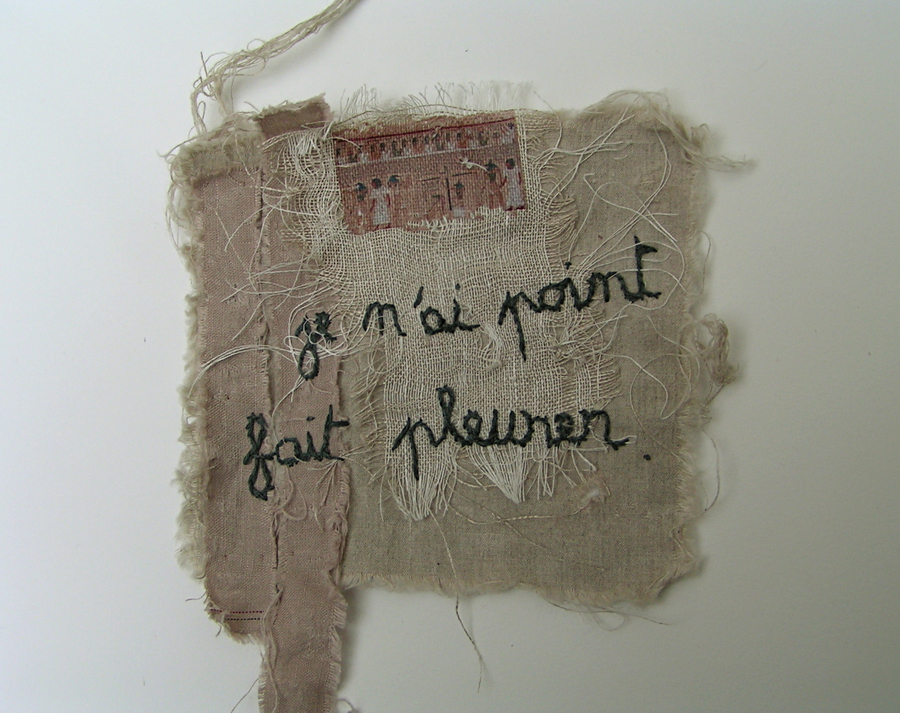 je n'ai point
fait pleurer.